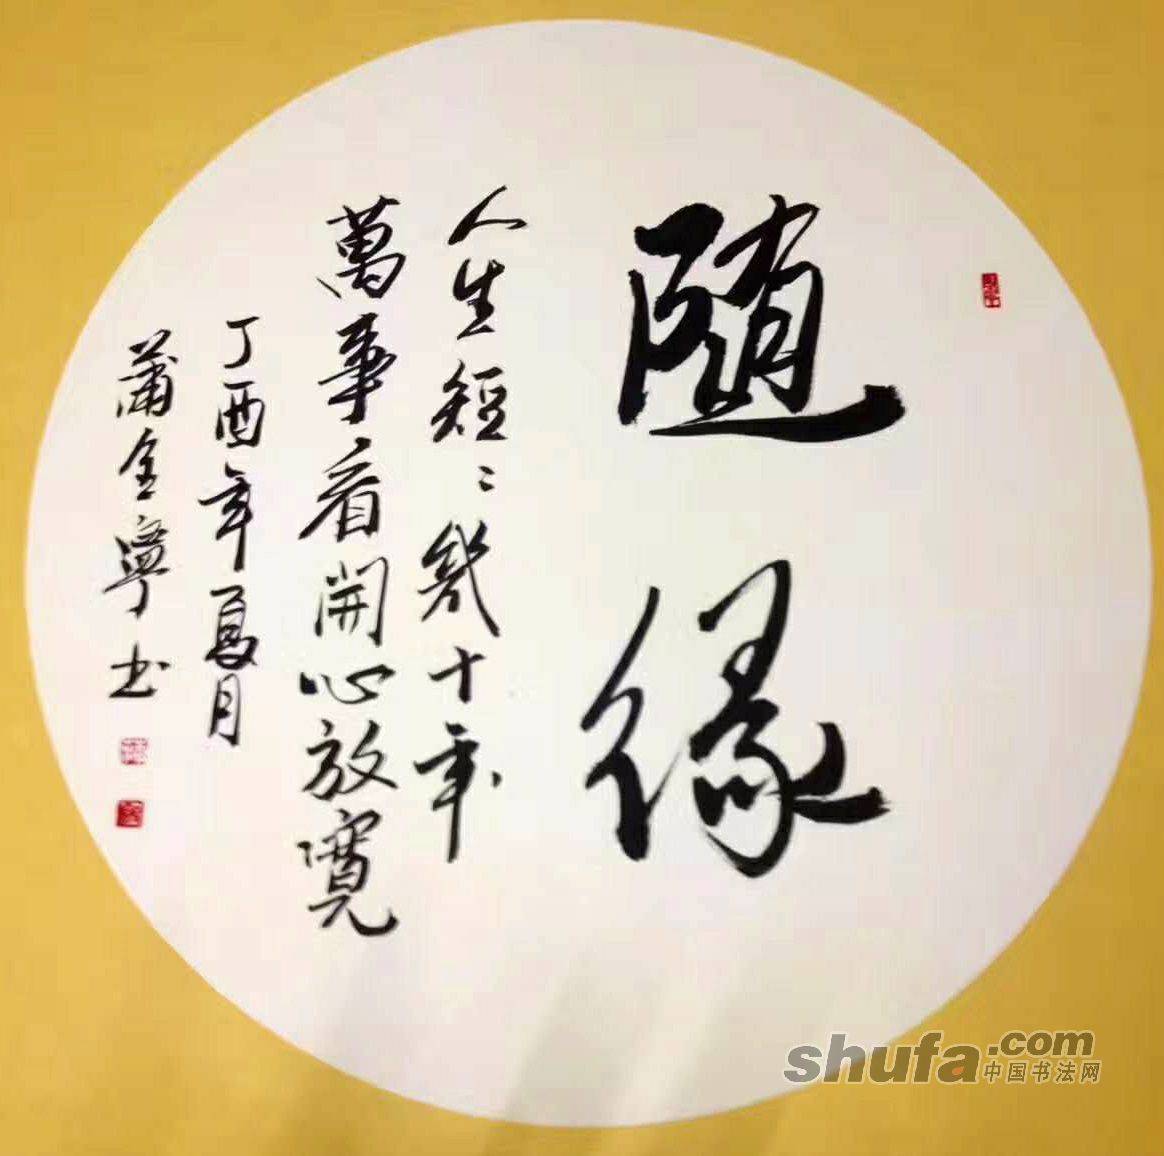 随缘
人生短々幾十年
萬事看開心放寬
丁酉年夏月
蒲金寧书
shufa.com
中国书法网